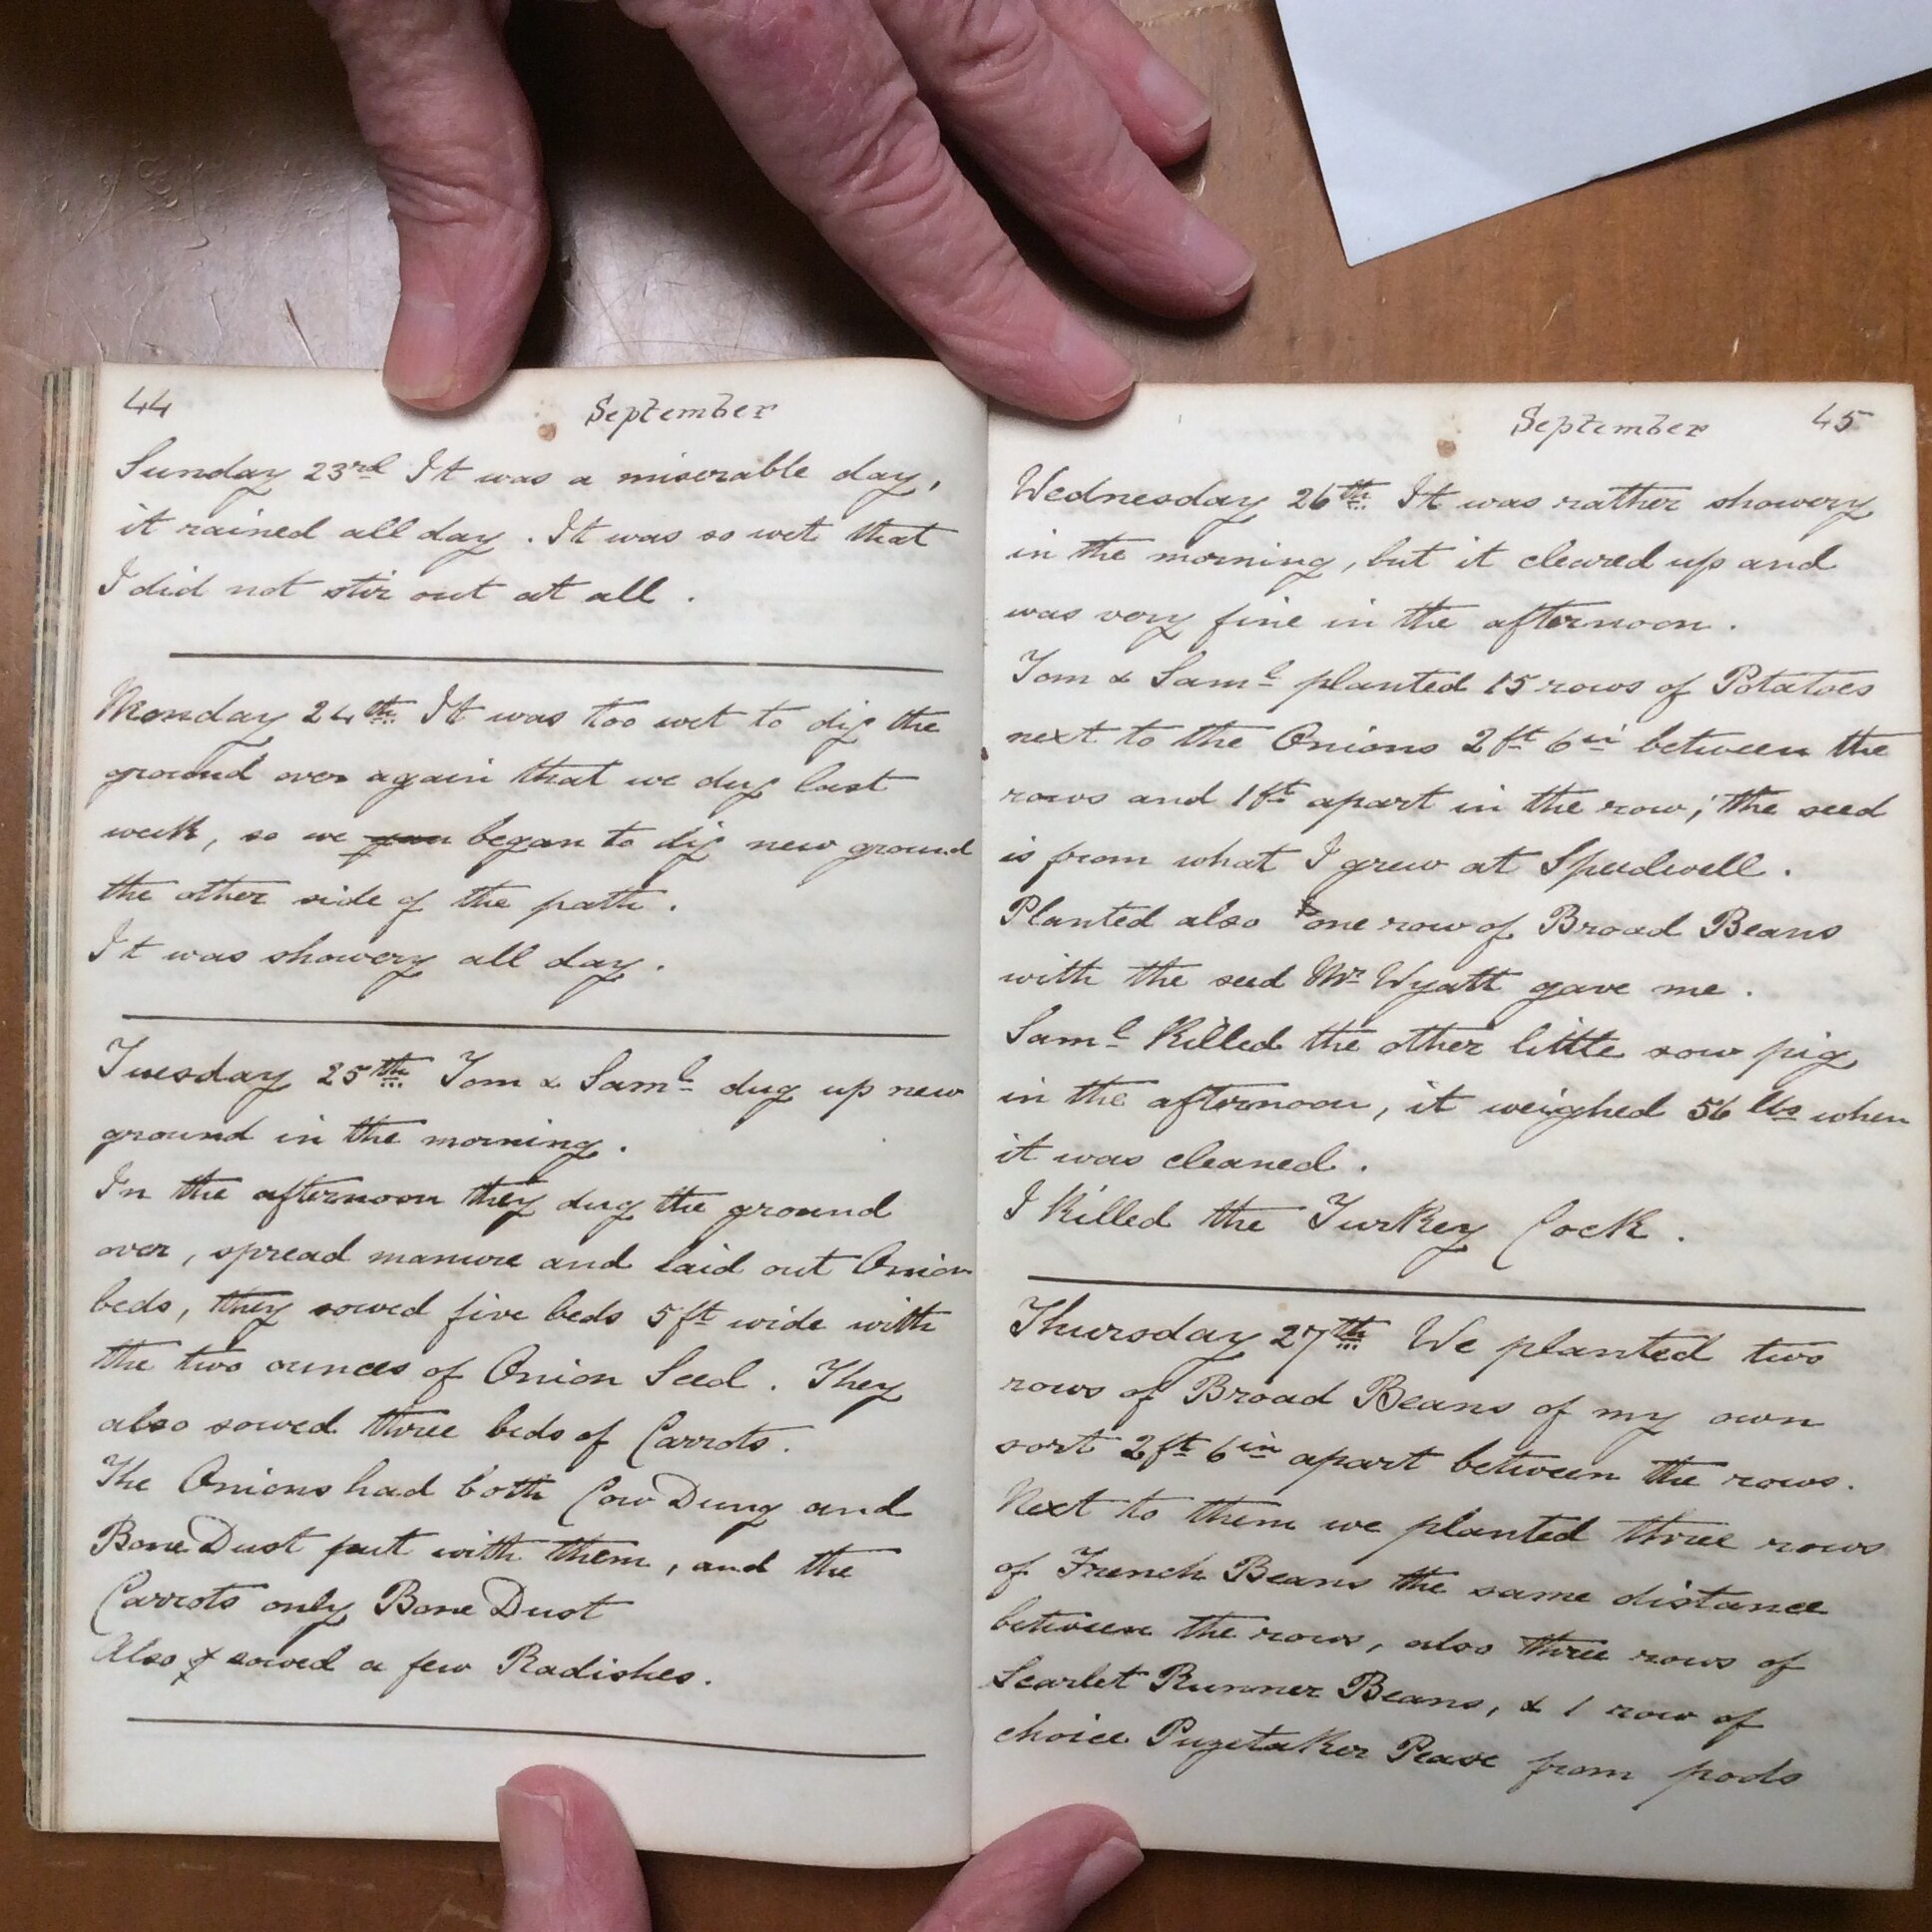 44 September
Sunday 23rd It was a miserable day,
it rained all day. It was so wet that
I did not stir out at all.
Monday 24th It was too wet to dig the
ground over again that we dug last
week, so we began to dig new ground
the other side of the path.
It was showery all day.
Tuesday 25th Tom & Saml dug up new
ground in the morning.
In the afternoon they dug the ground
over, spread manure and laid out Onion
beds, they sowed five beds 5 ft wide with
the two ounces of Onion Seed. They
also sowed three beds of Carrots.
The Onions had both Cow Dung and
Bone Dust put with them, and the
Carrots only Bone Dust
Also sowed a few Radishes.
September 45
Wednesday 26th It was rather showery
in the morning, but it cleared up and
was very fine in the afternoon.
Tom & Saml planted 15 rows of Potatoes
next to the Onions 2 ft 6 in between the
rows and 1 ft apart in the row; the seed
is from what I grew at Speedwell.
Planted also one row of Broad Beans
with the seed Mr Wyatt gave me.
Saml Killed the other little sow pig
in the afternoon, it weighed 56 lbs when
it was cleaned.
I Killed the Turkey Cock.
Thursday 27th We planted two
rows of Broad Beans of my own
sort 2 ft 6 in apart between the rows.
Next to them we planted three rows
of French Beans the same distance
between the rows, also three rows of
Scarlet Runner Beans, & 1 row of
choice Pease from pods